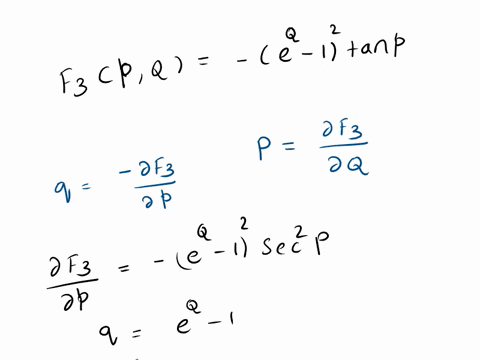 F₃(p, Q) = -(e^Q - 1)² tan p
q = -∂F₃/∂p    P = ∂F₃/∂Q
∂F₃/∂p = -(e^Q - 1)² sec² p
q = e^Q - 1